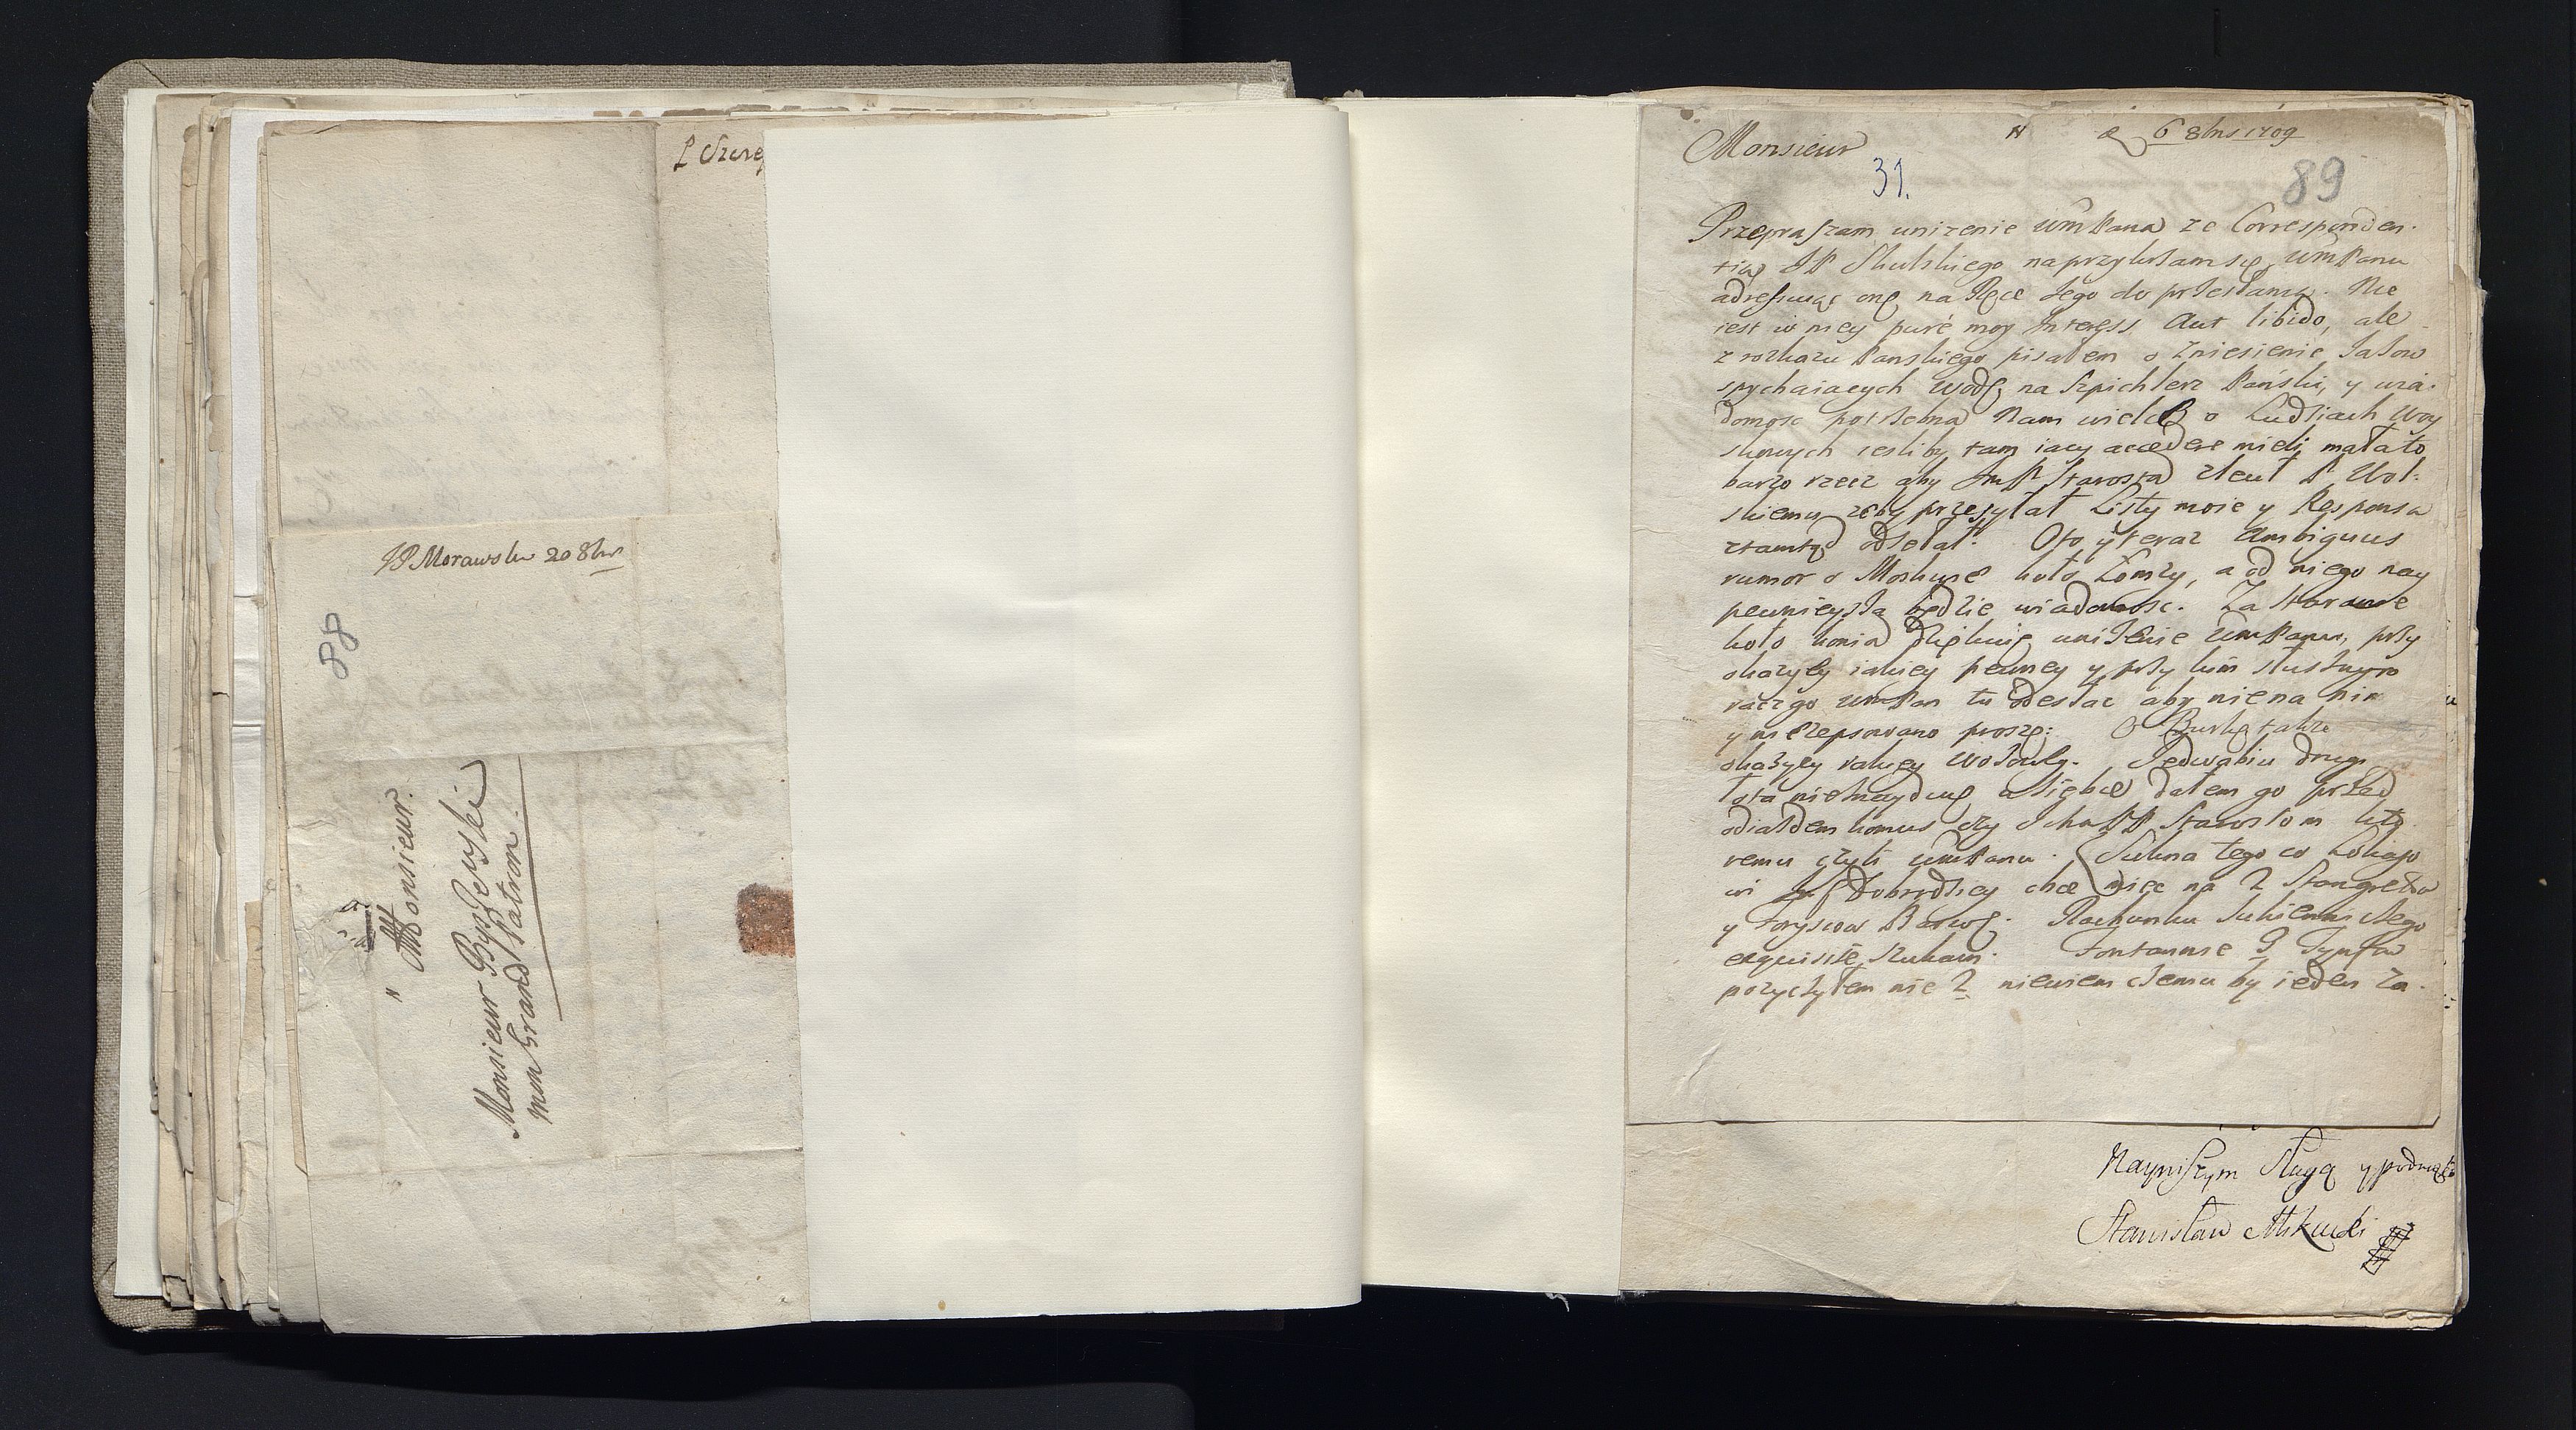 P Szcze
JP Morawski 20 8br
88
a
Monsieur.
Monsieur Byszewski
mon Grand Patron.
Monsieur
N a 6 8bris 1709
31.
89
Przepraszam unizenie WmPana ze Corresponden-
tią JP Skulskiego naprzykrzam się WmPanu
adressuiąc onę na Ręce Jego do przesłania. Nie
iest w niey puré moy Interess Aut libido, ale
z rozkazu Panskiego pisałem o Zniesienie
spychaiących Wodę na Szpichlerz Panski, y wia-
domosc potrzebna Nam wielce o Ludziach Woy
skowych iesliby tam iacy accedere mieli, mała to
barzo rzecz aby ImP Starosta zlecił P. Wol-
skiemu zeby przesyłał Listy moie y Responsa
ztamtąd odsełał. Oto y teraz Ambiguus
rumor o Moskwie koło Łomzy, a od niego nay
pewnieysza będzie wiadomosc. Za Staranie
koło konia dziękuię unizenie WmPanu, przy
okazyey iakiey pewney y przy kim słusznym
racz go WmPan tu odesłac aby nie na nim
y nie zepsowano proszę. O Burkę także
okazyey Jedwabiu drugi
łota nieznayduię u siebie dałem go przed
odiazdem komus czy Ich PP Starostom kto
remu czyli WmPanu. Sukna tego co Lokaio
wi Dobrodziey chce miec na 2 Stangretow
y Forysiow Barwę. Rachunku Sukienniczego
exquisite szukam. Fontannie 3 Tynfow
pozyczyłem nie 2 niewiem czemu by ieden za-
Nayniszym Sługą y podnoz
Stanisław